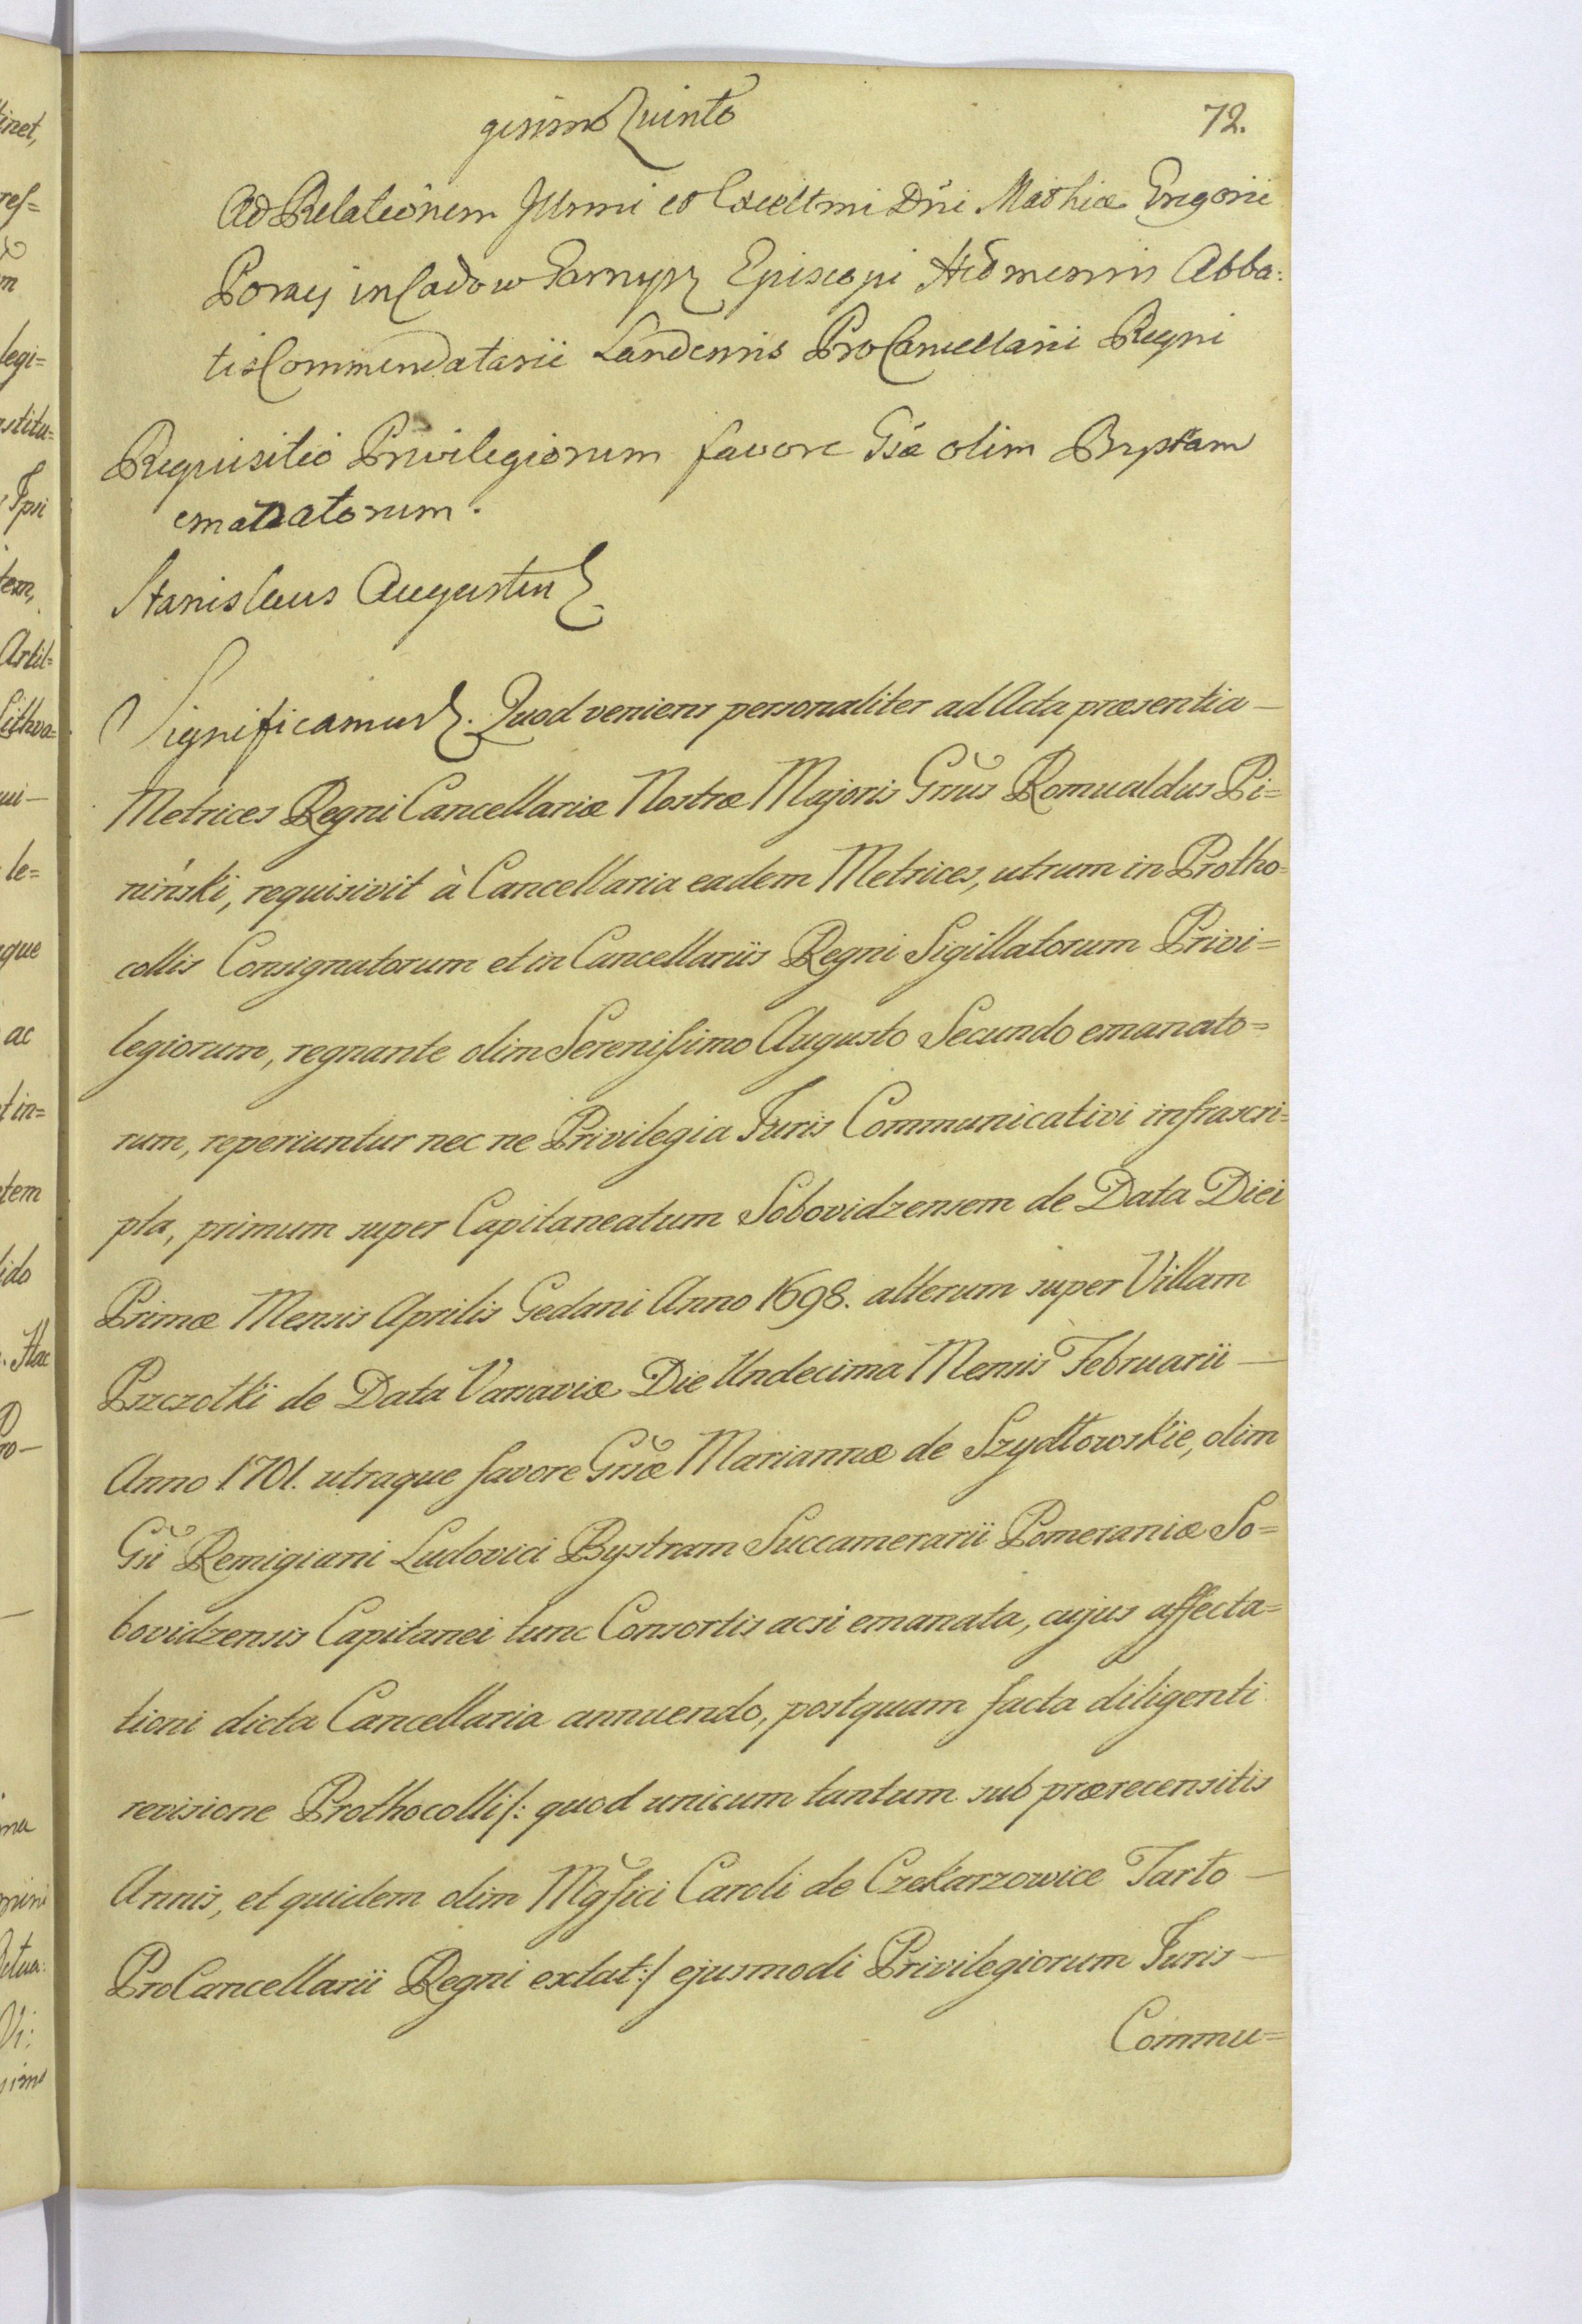 gesimo Quinto
72.
Ad Relationem Illmi et Excellmi Dni Mathiæ Gregorii
Poray in Ladow Garnysz Episcopi Chelmensis Abba:
tis Commendatarii Landensis ProCancellarii Regni
Requisitio Privilegiorum favore Gsæ olim Bystram
emanatorum.
Stanislaus Augustus
Significamus. Quod veniens personaliter ad Acta præsentia —
Metrices Regni Cancellariæ Nostræ Majoris Grsus Romualdus Pi=
niński, requisivit à Cancellaria eadem Metrices, utrum in Protho=
collis Consignatorum et in Cancellariis Regni Sigillatorum Privi=
legiorum, regnante olim Serenissimo Augusto Secundo emanato=
rum, reperiuntur nec ne Privilegia Juris Communicativi infrascri=
pta, primum super Capitaneatum Sobovidzensem de Data Diei
Primæ Mensis Aprilis Gedani Anno 1698. alterum super Villam
Pszczolki de Data Varsaviæ Die Undecima Mensis Februarii —
Anno 1701. utraque favore Grsæ Mariannæ de Szydłowskie, olim
Gsi Remigiani Ludovici Bystram Succamerarii Pomeraniæ So=
bovidzensis Capitanei tunc Consortis acsi emanata, cujus affecta=
tioni dicta Cancellaria annuendo, postquam facta diligenti
revisione Prothocolli /: quod unicum tantum sub prærecensitis
Annis, et quidem olim Mgfici Caroli de Czekarzowice Tarło —
ProCancellarii Regni extat :/ ejusmodi Privilegiorum Juris —
Commu=